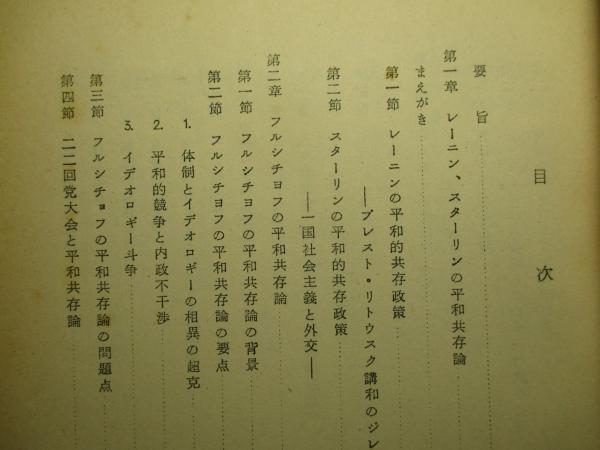 目次
要旨
第一章 レーニン、スターリンの平和共存論
まえがき
第一節 レーニンの平和的共存政策
――ブレスト・リトウスク講和のジレ
第二節 スターリンの平和的共存政策
――一国社会主義と外交――
第二章 フルシチョフの平和共存論
第一節 フルシチョフの平和共存論の背景
第二節 フルシチョフの平和共存論の要点
1. 体制とイデオロギーの相異の超克
2. 平和的競争と内政不干渉
3. イデオロギー斗争
第三節 フルシチョフの平和共存論の問題点
第四節 二二回党大会と平和共存論